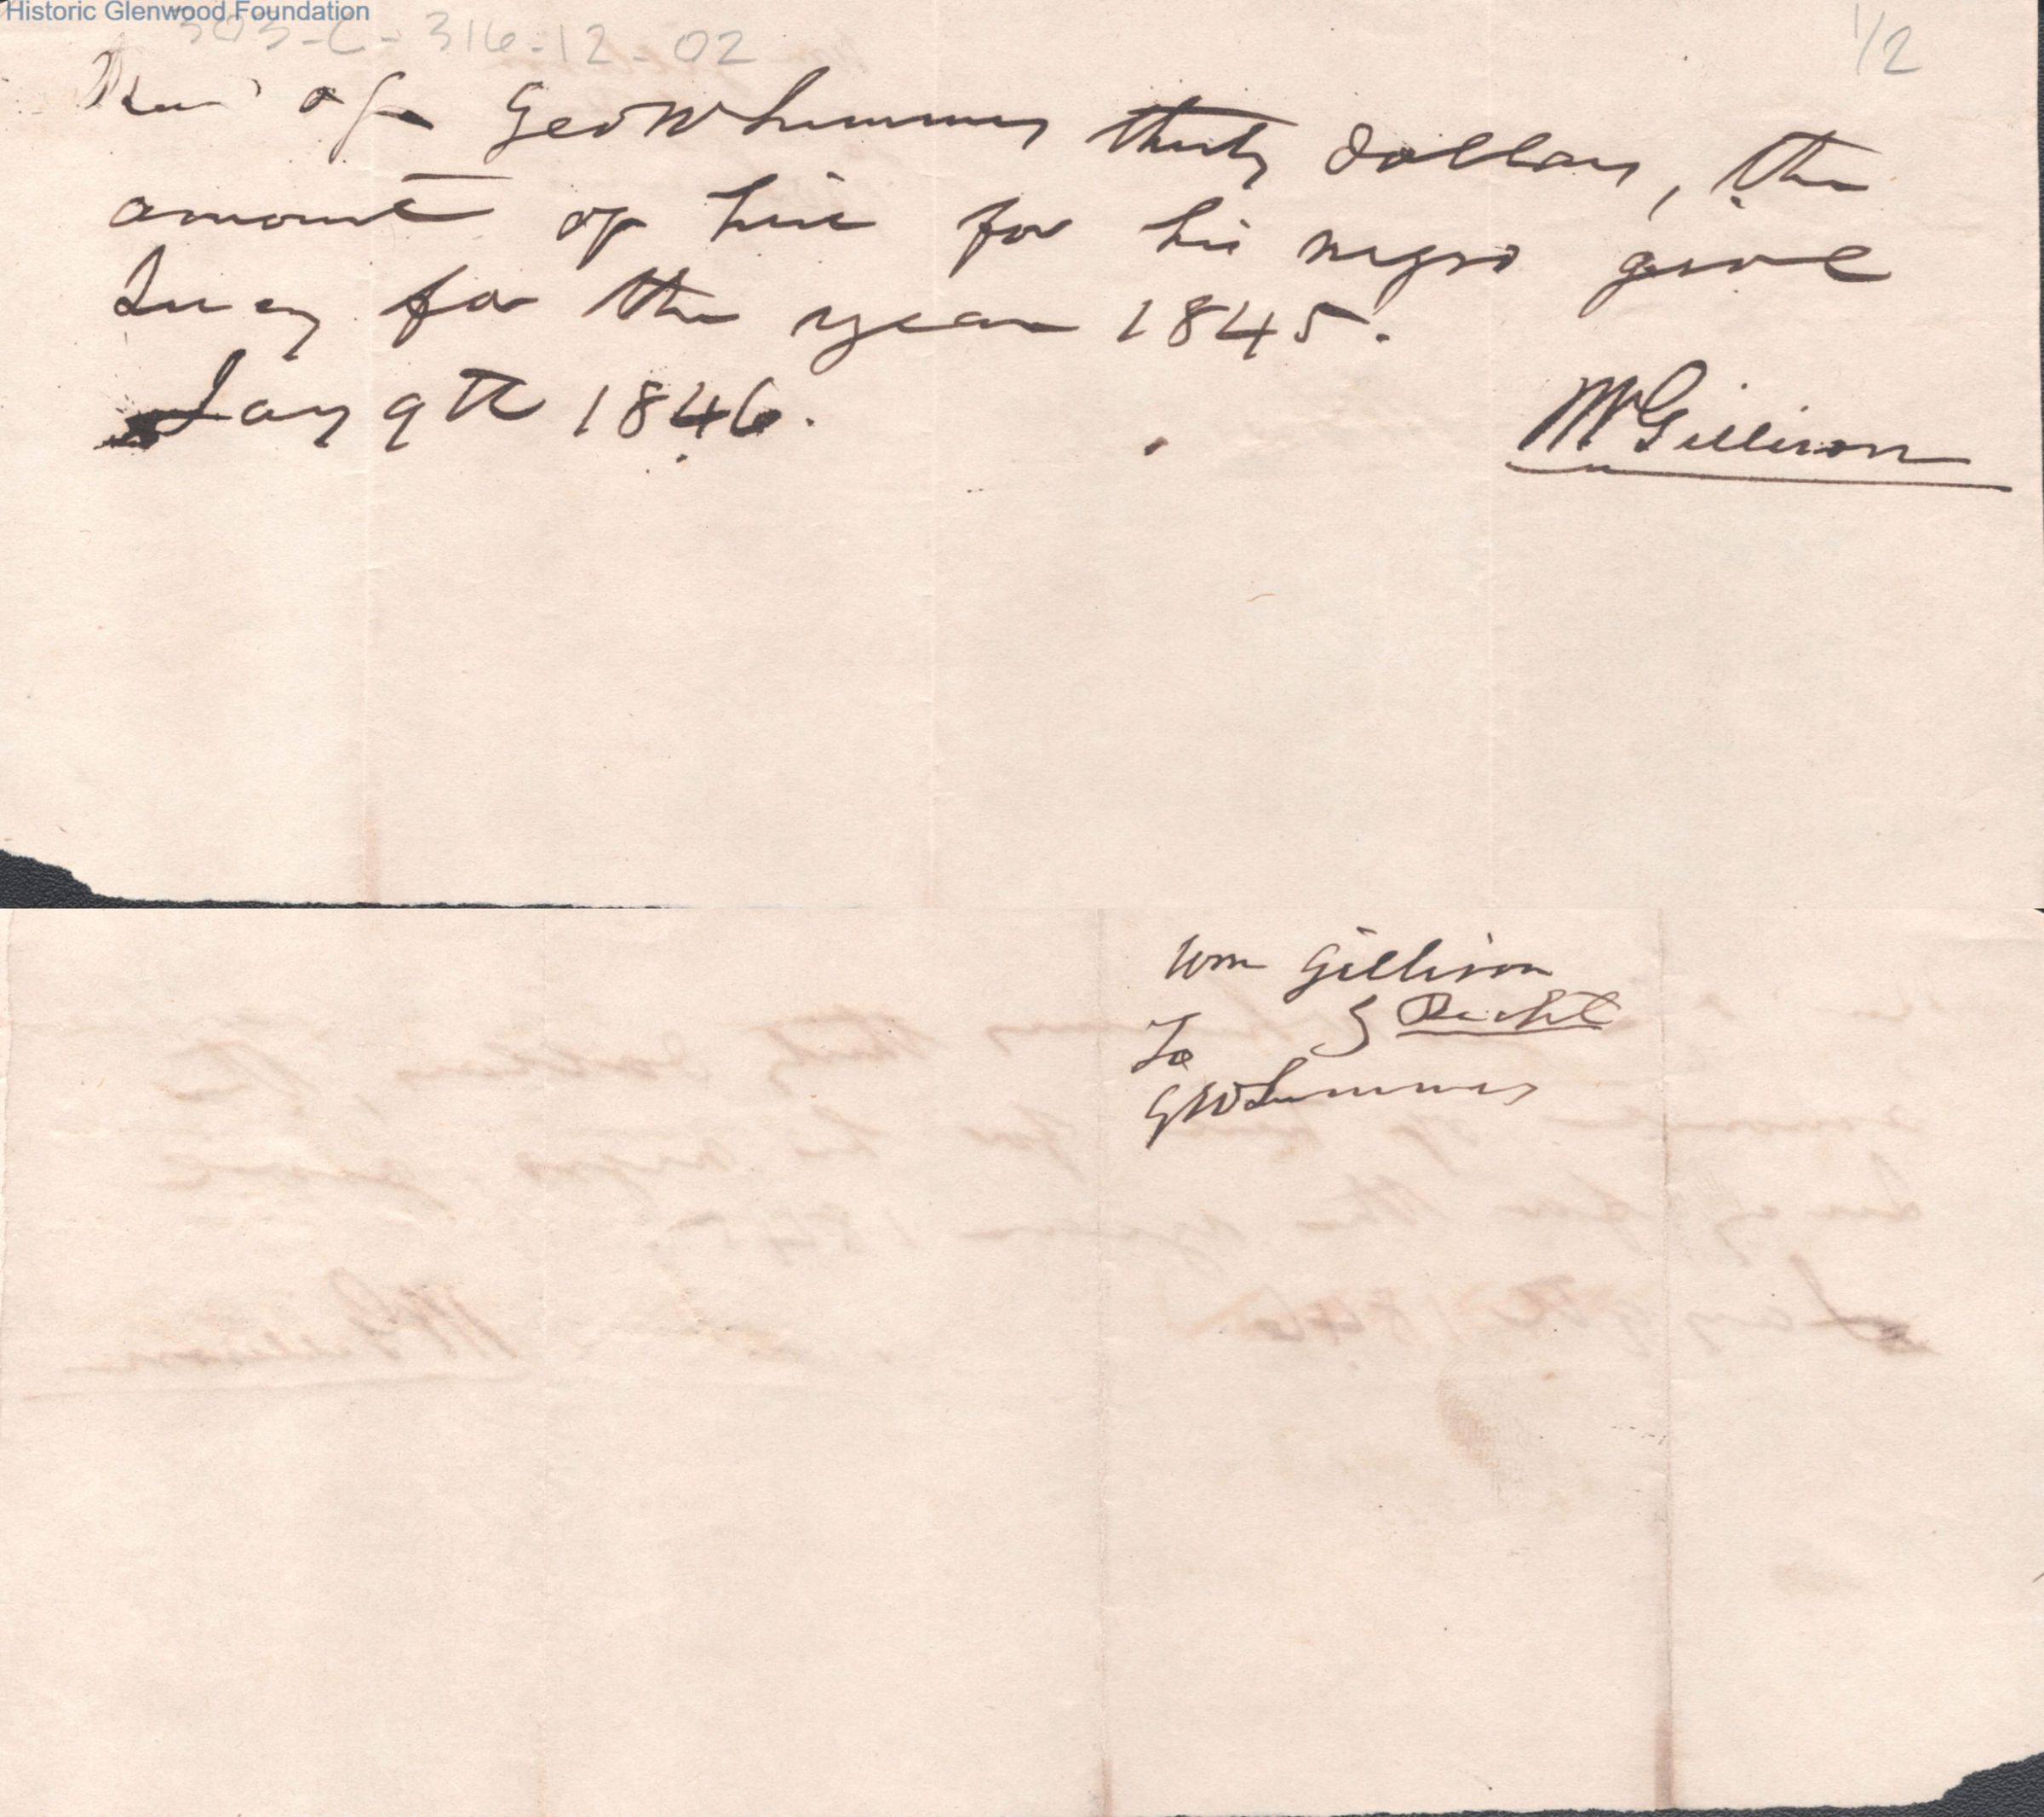 Historic Glenwood Foundation
303-C-316-12-02
1/2
Recd of Geo W Summers thirty dollars, the
amount of hire for his negro girl
Lucy for the year 1845.
Jany 9th 1846.
Wm Gillison
Wm Gillison
To } Receipt
G W Summers